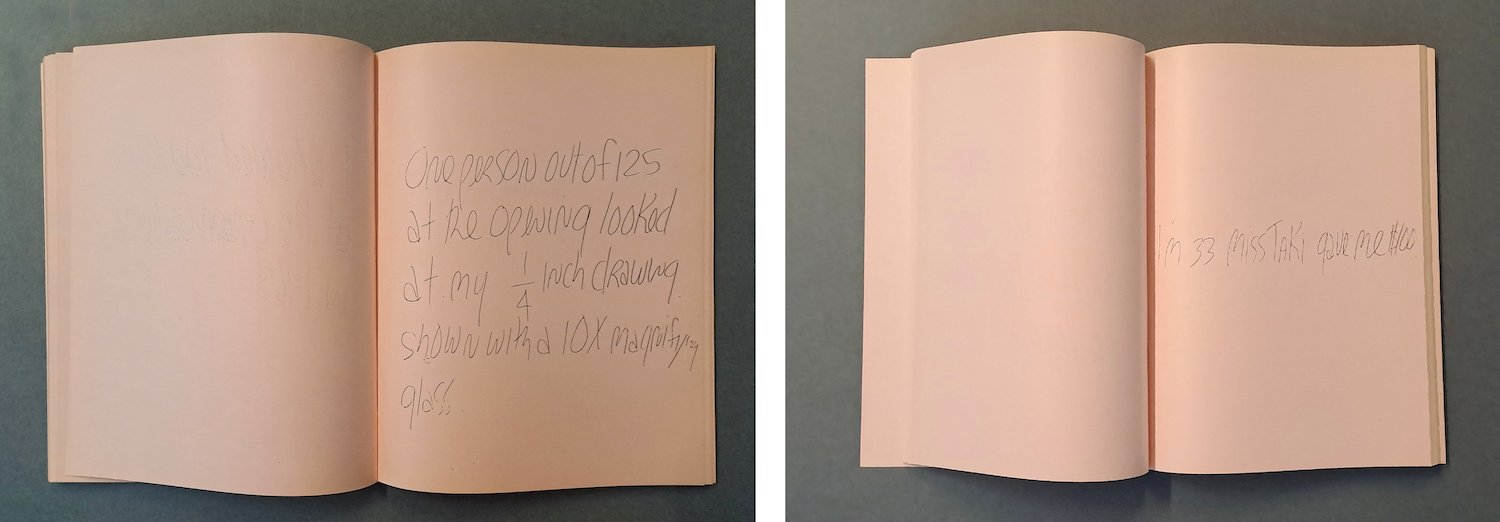 One person out of 125
at the opening looked
at my 1/4 inch drawing
shown with a 10X magnifying
glass.
I'm 33 miss TAKi gave me